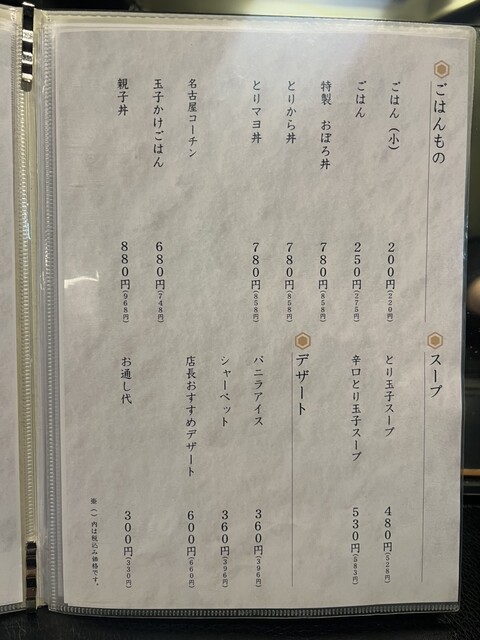 ごはんもの
ごはん（小） 200円(220円)
ごはん 250円(275円)
特製 おぼろ丼 780円(858円)
とりから丼 780円(858円)
とりマヨ丼 780円(858円)
名古屋コーチン
玉子かけごはん 680円(748円)
親子丼 880円(968円)
スープ
とり玉子スープ 480円(528円)
辛口とり玉子スープ 530円(583円)
デザート
バニラアイス 360円(396円)
シャーベット 360円(396円)
店長おすすめデザート 600円(660円)
お通し代 300円(330円)
※（ ）内は税込み価格です。